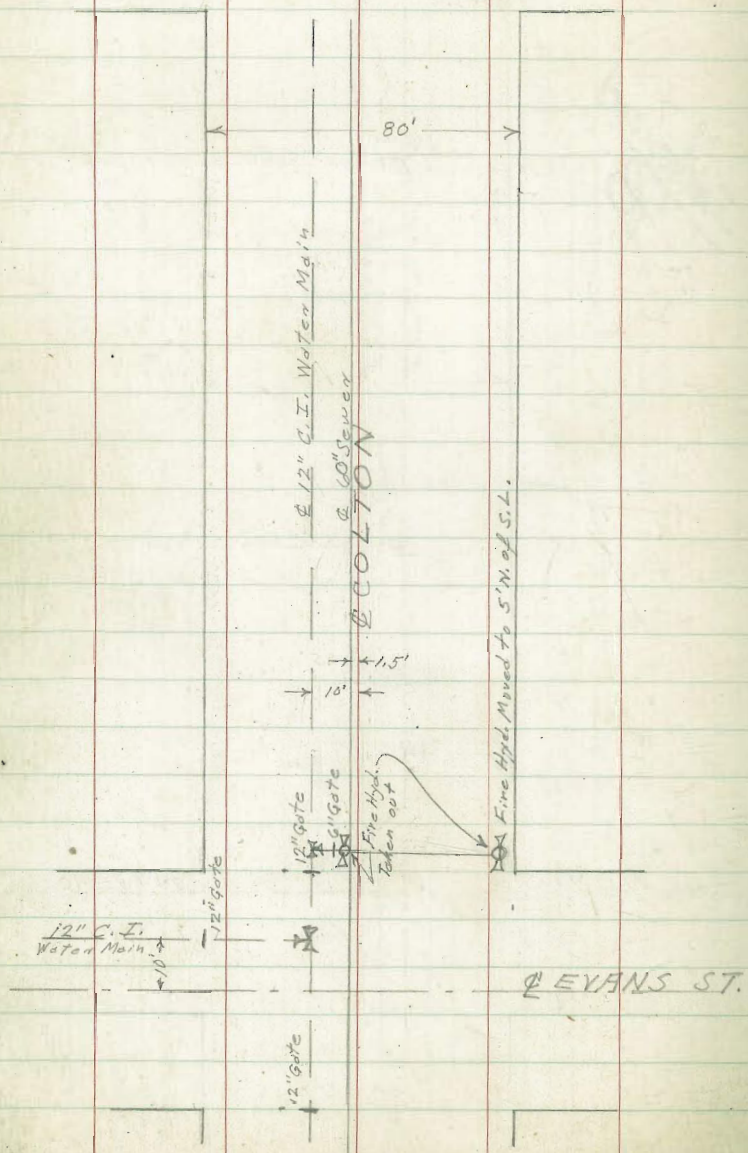 80'
℄ 12" C.I. Water Main
℄ 60" Sewer
℄ COLTON
Fire Hyd. Moved to 5' N. of S.L.
1.5'
10'
12" Gate
6" Gate
Fire Hyd.
Taken out
12" Gate
12" C.I.
Water Main
10'
℄ EVANS ST.
12" Gate